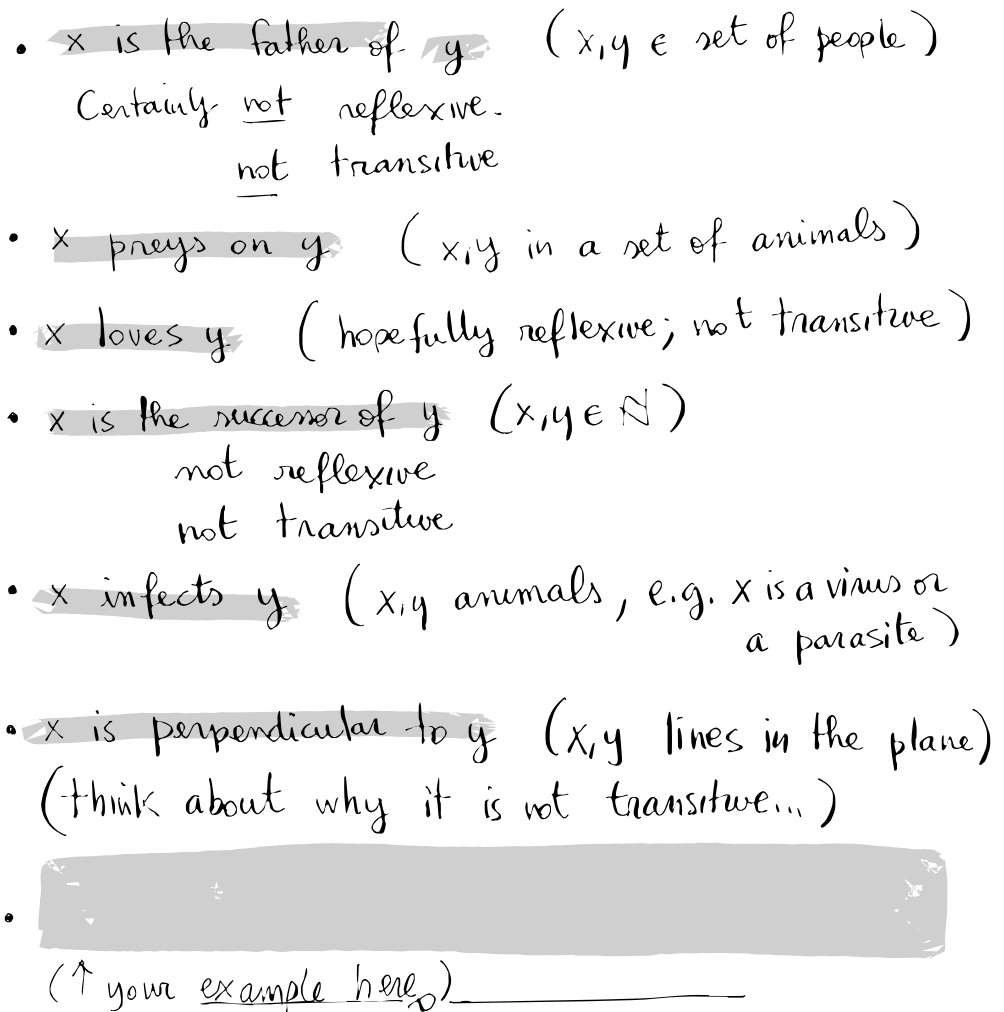 • x is the father of y (x,y ∈ set of people)
Certainly not reflexive.
not transitive
• x preys on y (x,y in a set of animals)
• x loves y (hopefully reflexive; not transitive)
• x is the successor of y (x,y ∈ ℕ)
not reflexive
not transitive
• x infects y (x,y animals, e.g. x is a virus or
a parasite)
• x is perpendicular to y (x,y lines in the plane)
(think about why it is not transitive...)
•
(↑ your example here)